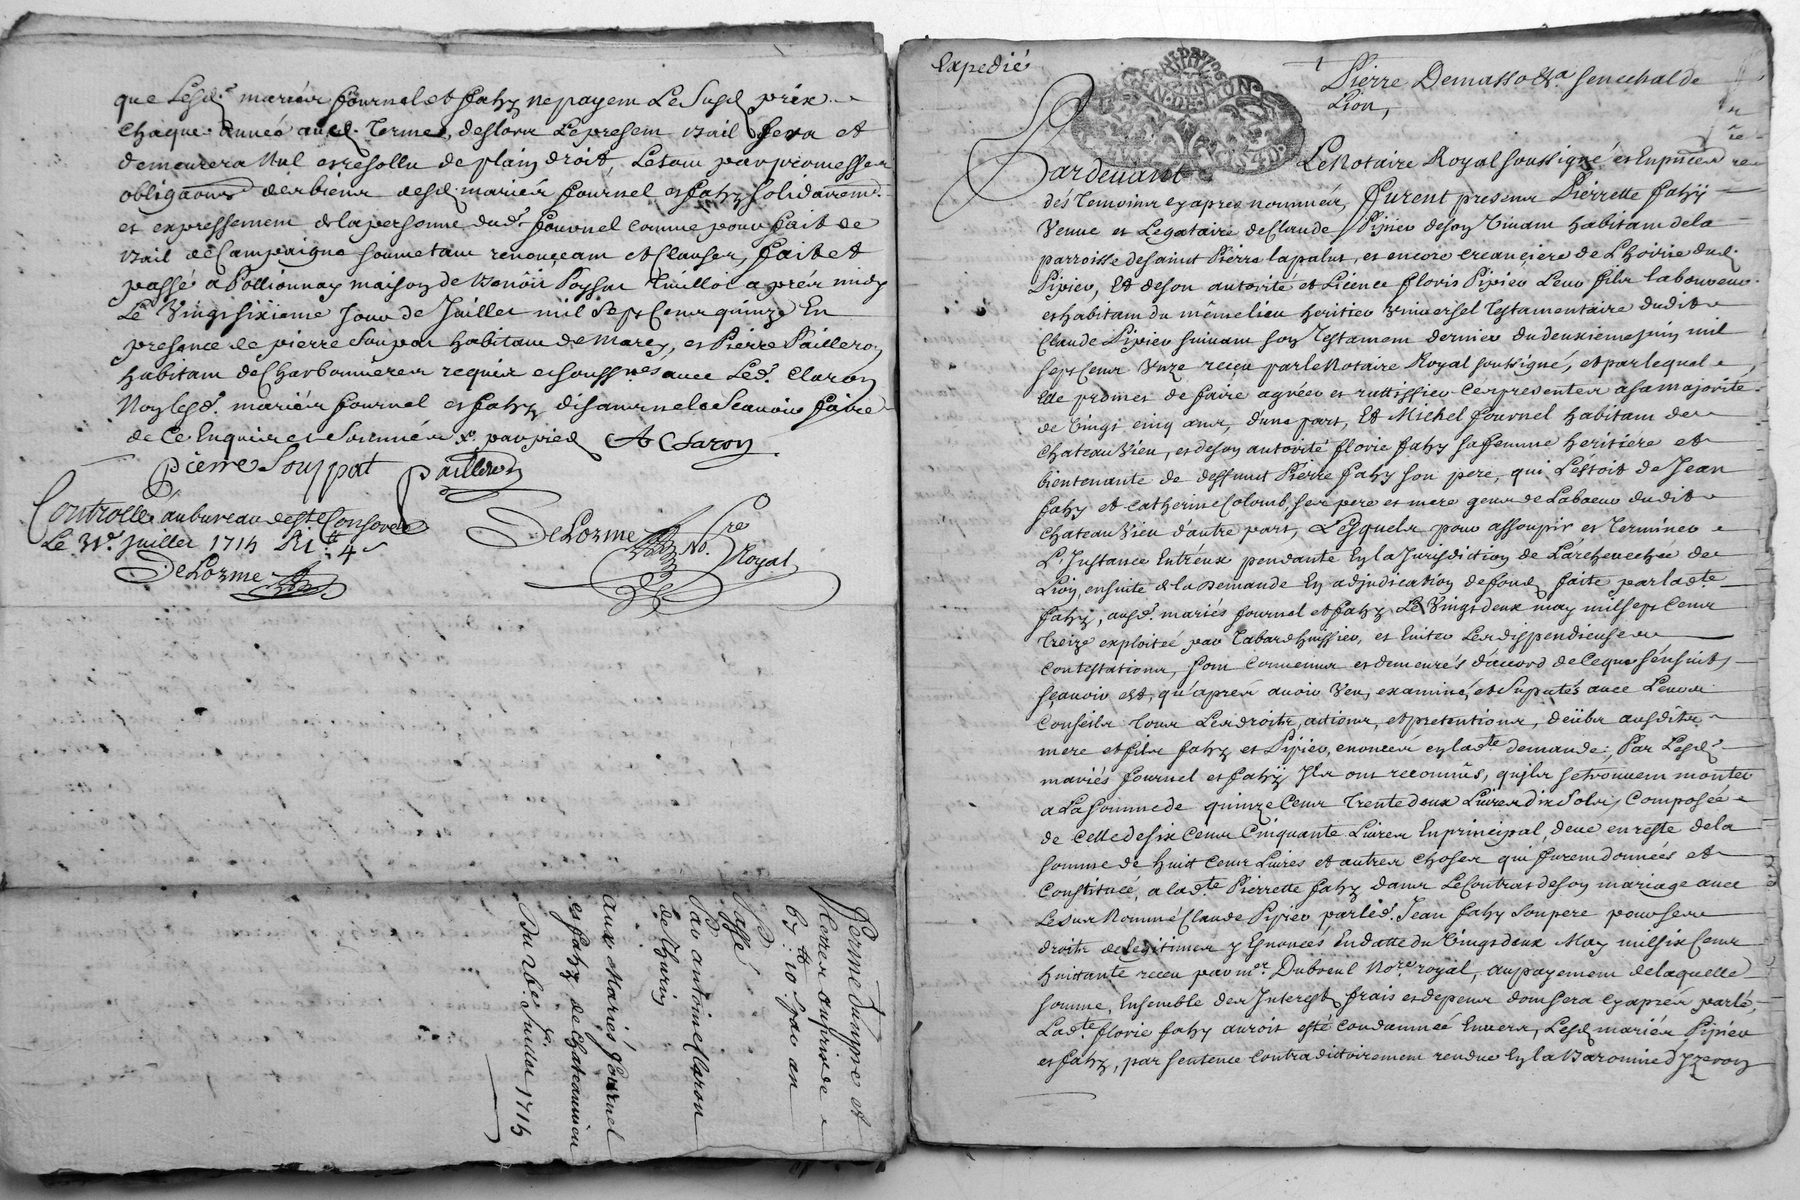 que lesd. mariés fournel et fahy ne payent le susd. prix
chaque année aud. terme, deslors le present bail sera et
demeurera nul et resollu de plain droit, le tout par promesses
obligaons des biens desd. mariés fournel et fahy solidairemt.
et expressement de la personne dud. fournel comme pour fait de
bail de Campaigne soumetant renonceant et clauses, fait et
passé a Pollionnay maison de Benoist
le vingt sixieme jour de Juillet mil sept cens quinze En
presence de pierre Soupat habitant de Marcy, et Pierre Pailleron
habitant de Charbonnieres requis et soussnés avec led. Claron
Non lesd. mariés fournel et fahy disant ne le sçauoir faire
de ce Enquis et sommés &. par pied A Claron
pierre Souppat pailleron
Controllé au bureau de ste Consorce
Le 31e. Juillet 1715 R tt 4 s
DeLorme
DeLorme No.re Royal
Ferme Simple et
Terres au prix de
67 tt 10 s par an
Passé
Par antoine Claron
de Thurin
aux Mariés fournel
et fahy de Chateauvieu
Du 26e. Juillet 1715
Expedié
Pierre Demasso &a. senechal de
Lion,
Pardevant Le Notaire Royal soussigné et En presence
dés temoins cy apres nommés, furent presens Pierrette fahÿ
Veuve et Legataire de Claude Pipieu de son vivant habitant de la
parroisse de saint Pierre la palu, et encore creanciere de L'hoirie dud.
Pipieu, Et de son autorité et Licence floris Pipieu Leur fils laboureur
et habitant du même lieu heritier universel testamentaire dudit
Claude Pipieu suivant son testament dernier du deuxieme juin mil
sept cens unze receu par le Notaire Royal soussigné, et par lequel
elle promet de faire agréer et rattiffier ces presentes a sa majorité
de vingt cinq ans, d'une part, Et Michel fournel habitant de
chateauvieu, et de son autorité florie fahy sa femme heritiere et
bientenante de deffunt Pierre fahy son pere, qui L'estoit de Jean
fahy et catherine Colomb ses pere et mere gens de Labeur dudit
chateauvieu d'autre part, Lesquels pour assoupir et terminer
L'Instance Entréux pendante En la Jurisdiction de L'archeuechée de
Lion, ensuite de la Demande En adjudication de fond faite par lad.te
fahy, ausd. mariés fournel et fahy Le vingt deux may mil sept cens
treize exploitée par Tabard huissier, et Eviter Les dispendieuses
contestations, sont convenus et demeurés d'accord de ce que s'ensuit,
sçauoir est, qu'apres avoir veu, examiné, et suputés avec Leurs
conseils tous Les droits, actions, et pretentions, deübs ausdits
mere et fils fahy et Pipieu, enoncés en lad.te demande; Par Lesd.
mariés fournel et fahÿ Ils ont reconnûs, qu'ils se trouvent monter
a La somme de quinze cens trente deux Livres dix sols, composée
de cette de six cens cinquante Livres En principal, deue en reste de la
somme de huit cens Livres et autres choses qui furent données et
constituée, a lad.te Pierrette fahy dans Le Contrat de son mariage avec
Le sus Nommé Claude Pipieu, par led. Jean fahy son pere pour ses
droits de legitimes y Enonces En datte du vingt deux May mil six cens
huittante receu par mr. Dubreul No.re royal, au payement de laquelle
somme, Ensemble des Interest, frais et depens dont sera cy aprés parlé,
Lad.te florie fahy auroit esté condamnée Envers, Lesd. mariés Pipieu
et fahy, par sentence contradictoirement rendue En la Baronnie d'Yzeron